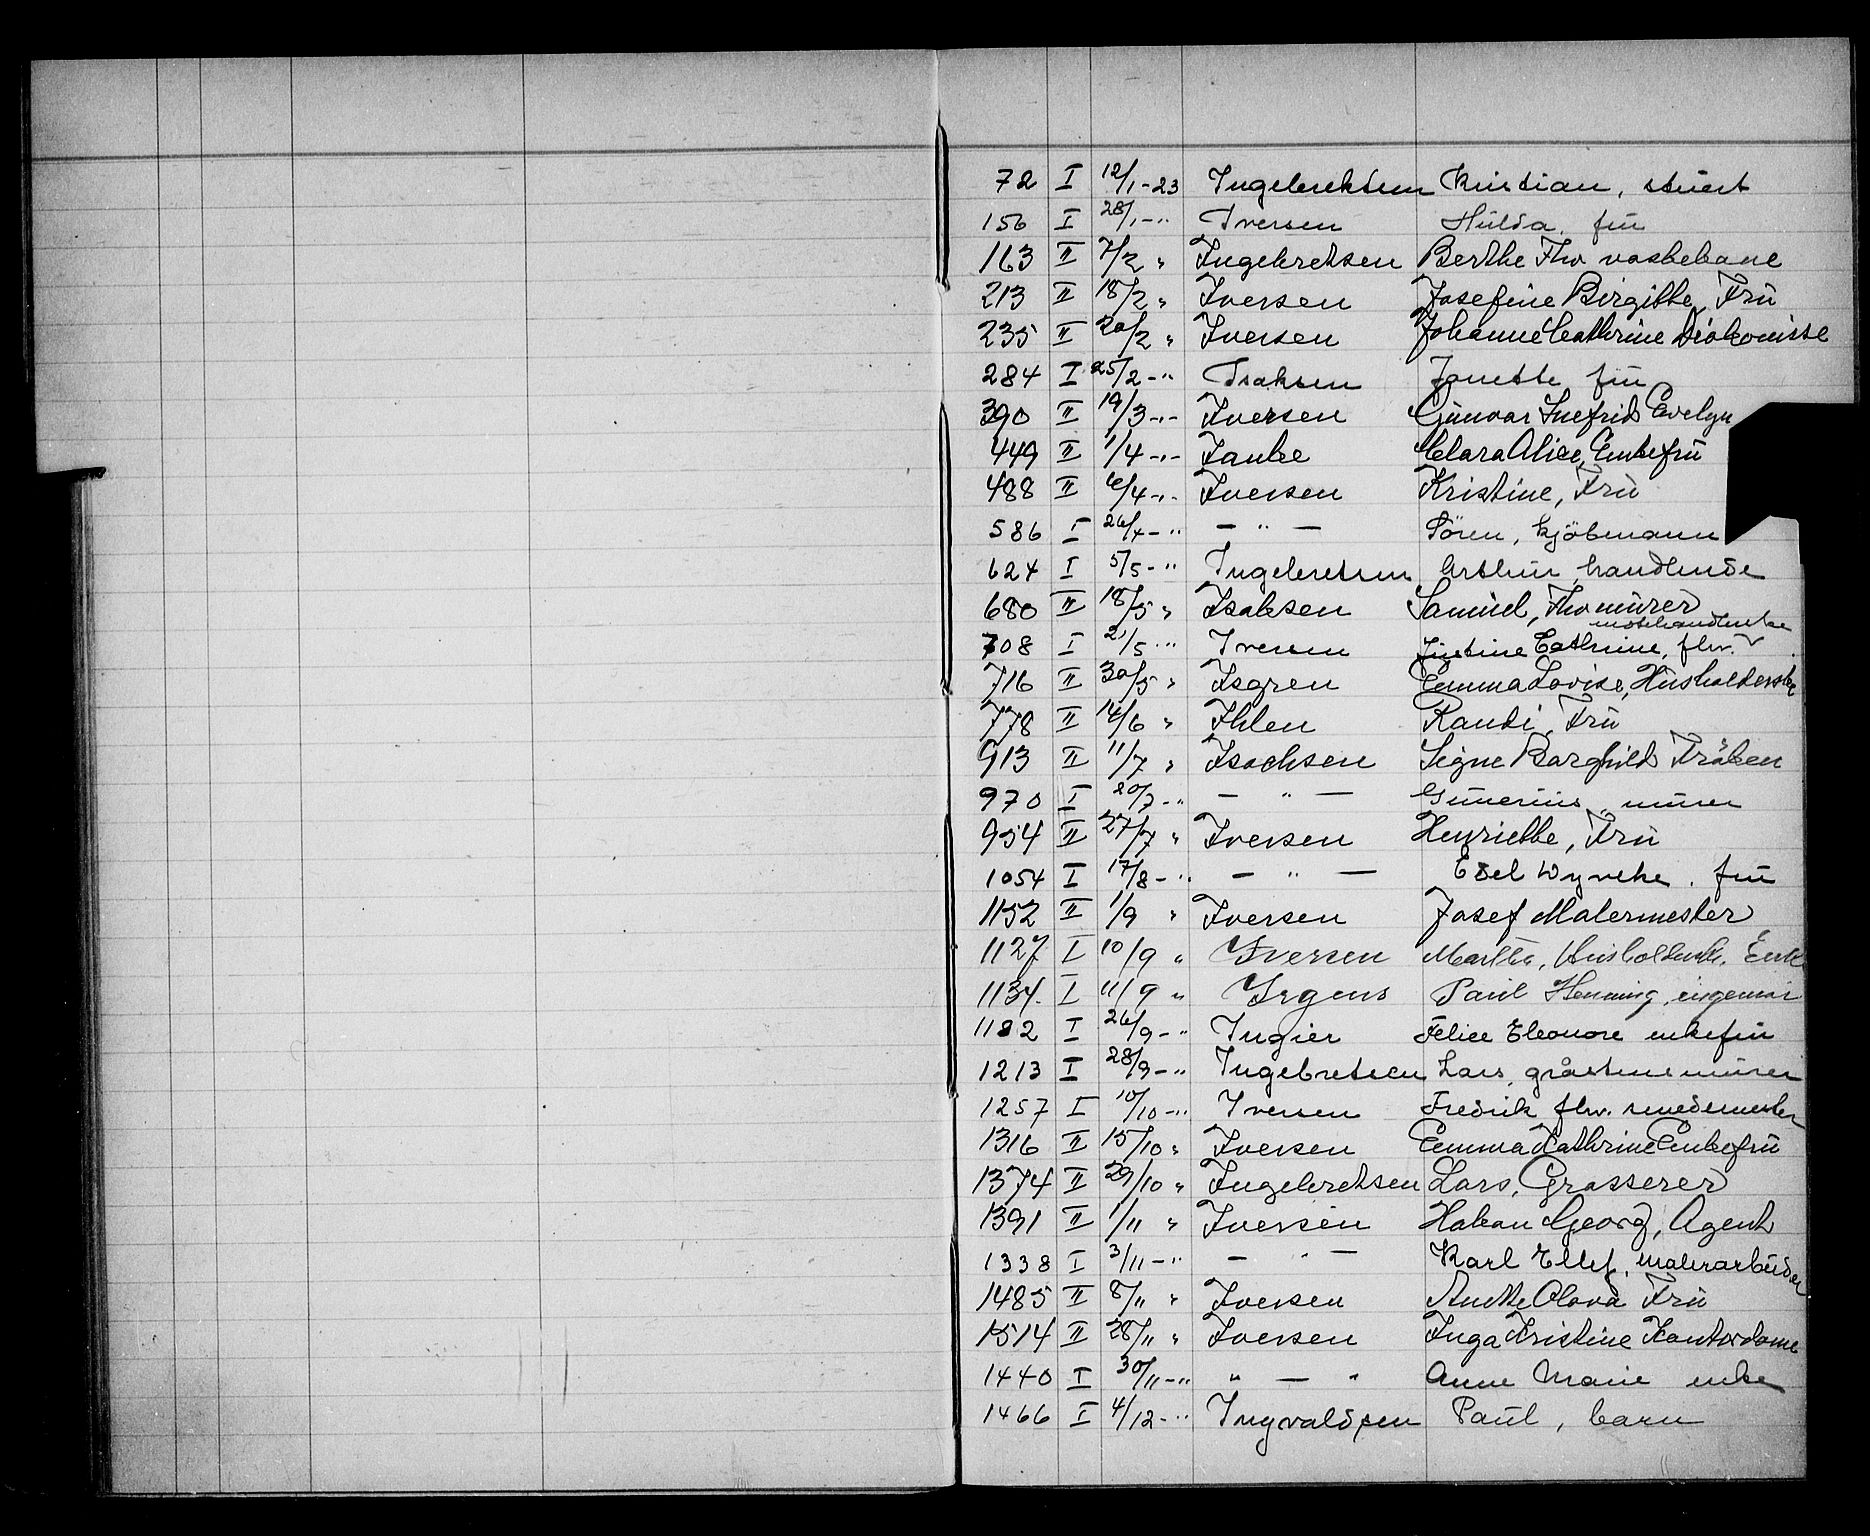 72 I 12/1-23 Ingebrektsen Kristian, stuert
156 I 28/1-" Iversen Hulda, fru
163 II 7/2 " Ingebretsen Berthe Fhv vaskekone
213 II 18/2 " Iversen Josefine Birgitte, Frú
235 II 20/2 " Iversen Johanne Cathrine Diakonisse
284 I 25/2-" Isaksen Janette fru
390 II 19/3-"- Iversen Gunvor Snefrid Evelyn
449 II 1/4-"- Janke Clara Alice, Enkefrú
488 II 6/4-"- Iversen Kristine, Frú
586 I 26/4-" - " - Sören, kjöbmann
624 I 5/5-" Ingebretsen Arthur, handlende
680 II 18/5 " Isaksen Samúel, Fhv múrer
motehandlerske
708 I 21/5 " Iversen Justine Cathrine, fhv.
716 II 30/5 " Isgren Emma Lovise, Húsholderske
778 II 14/6 " Ihlen Randi, Frú
913 II 11/7 " Isachsen Signe Borghild Fröken
970 I 20/7-" - " - Gunerius, murer
954 II 27/7 " Iversen Henriette, Frú
1054 I 17/8-" - " - Edel Wyveke, fru
1152 II 1/9 " Iversen Josef Malermester
1127 I 10/9 " Iversen Martha, Husholdersk, Enke
1134. I 11/9 " Irgens Paul Henning, ingeniør
1182 I 26/9-" Ingier Felice Eleonore enkefru
1213 I 28/9-" Ingebretsen Lars, gråstensmurer
1257 I 10/10-" Iversen Fredrik fhv. smedemester
1316 II 15/10 " Iversen Emma Kathrine Enkefrú
1374 II 29/10 " Ingebretsen Lars, Grosserer
1391 II 1/11 " Iversen Hakan Georg, Agent
1338 I 3/11-" - " - Karl Ellef, malerarbeider
1485 II 8/11 " Iversen Anette Olava Frú
1514 II 28/11 " Iversen Inga Kristine Kontordame
1440 I 30/11-" " - " Anne Marie enke
1466 I 4/12-" Ingvaldsen Paul, barn